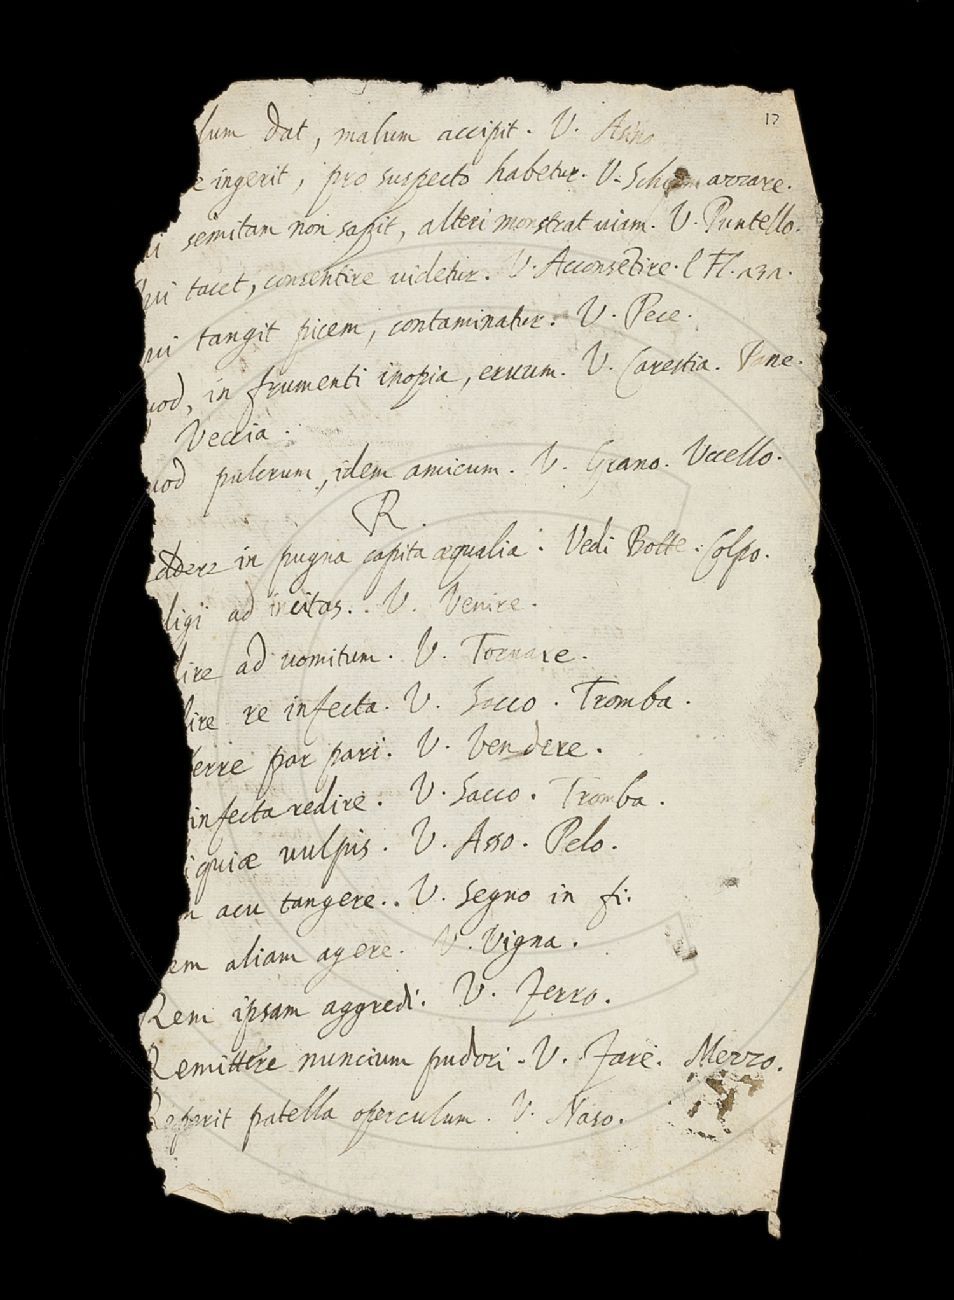 17
lum dat, malum accipit. V. Asino
e ingerit, pro suspecto habetur. V. Schiamazzare.
i semitam non sapit, alteri monstrat uiam. V. Puntello.
hui tacet, consentire uidetur. V. Acconsẽtire. l Fl. 131.
ui tangit picem, contaminatur. V. Pece.
uod, in frumenti inopia, eruum. V. Carestia. Pane.
Veccia.
uod pulcrum, idem amicum. V. Grano. Vccello.
R.
eddere in pugna capita æqualia. Vedi Botte. Colpo.
digi ad incitas.. V. Venire.
dire ad uomitum. V. Tornare.
dire re infecta. V. Sacco. Tromba.
ferre par pari. V. Vendere.
infecta redire. V. Sacco. Tromba.
iquiæ uulpis. V. Asso. Pelo.
m acu tangere.. V. Segno in fi.
em aliam agere. V. Vigna.
Rem ipsam aggredi. V. Ferro.
Remittere nuncium pudori. V. Fare. Mezzo.
Reperit patella operculum. V. Naso.